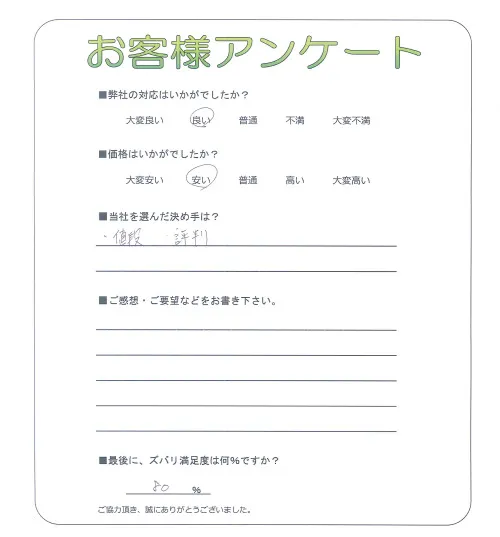 お客様アンケート
■弊社の対応はいかがでしたか？
大変良い 良い 普通 不満 大変不満
■価格はいかがでしたか？
大変安い 安い 普通 高い 大変高い
■当社を選んだ決め手は？
・値段 ・評判
■ご感想・ご要望などをお書き下さい。
■最後に、ズバリ満足度は何%ですか？
80 %
ご協力頂き、誠にありがとうございました。